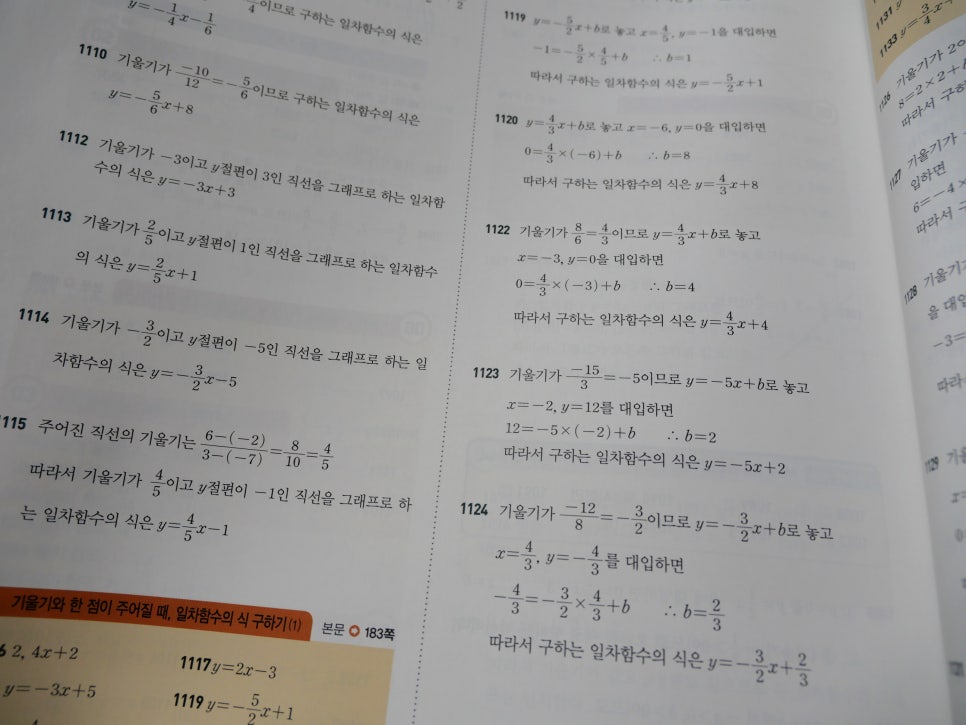 y=-\frac{1}{4}x-\frac{1}{6}
이므로 구하는 일차함수의 식은
1110 기울기가 \frac{-10}{12}=-\frac{5}{6}이므로 구하는 일차함수의 식은
y=-\frac{5}{6}x+8
1112 기울기가 -3이고 y절편이 3인 직선을 그래프로 하는 일차함
수의 식은 y=-3x+3
1113 기울기가 \frac{2}{5}이고 y절편이 1인 직선을 그래프로 하는 일차함수
의 식은 y=\frac{2}{5}x+1
1114 기울기가 -\frac{3}{2}이고 y절편이 -5인 직선을 그래프로 하는 일
차함수의 식은 y=-\frac{3}{2}x-5
1115 주어진 직선의 기울기는 \frac{6-(-2)}{3-(-7)}=\frac{8}{10}=\frac{4}{5}
따라서 기울기가 \frac{4}{5}이고 y절편이 -1인 직선을 그래프로 하
는 일차함수의 식은 y=\frac{4}{5}x-1
기울기와 한 점이 주어질 때, 일차함수의 식 구하기(1) 본문 183쪽
6 2, 4x+2
1117 y=2x-3
y=-3x+5
1119 y=-\frac{5}{2}x+1
1119 y=-\frac{5}{2}x+b로 놓고 x=\frac{4}{5}, y=-1을 대입하면
-1=-\frac{5}{2}×\frac{4}{5}+b ∴ b=1
따라서 구하는 일차함수의 식은 y=-\frac{5}{2}x+1
1120 y=\frac{4}{3}x+b로 놓고 x=-6, y=0을 대입하면
0=\frac{4}{3}×(-6)+b ∴ b=8
따라서 구하는 일차함수의 식은 y=\frac{4}{3}x+8
1122 기울기가 \frac{8}{6}=\frac{4}{3}이므로 y=\frac{4}{3}x+b로 놓고
x=-3, y=0을 대입하면
0=\frac{4}{3}×(-3)+b ∴ b=4
따라서 구하는 일차함수의 식은 y=\frac{4}{3}x+4
1123 기울기가 \frac{-15}{3}=-5이므로 y=-5x+b로 놓고
x=-2, y=12를 대입하면
12=-5×(-2)+b ∴ b=2
따라서 구하는 일차함수의 식은 y=-5x+2
1124 기울기가 \frac{-12}{8}=-\frac{3}{2}이므로 y=-\frac{3}{2}x+b로 놓고
x=\frac{4}{3}, y=-\frac{4}{3}를 대입하면
-\frac{4}{3}=-\frac{3}{2}×\frac{4}{3}+b ∴ b=\frac{2}{3}
따라서 구하는 일차함수의 식은 y=-\frac{3}{2}x+\frac{2}{3}
1131 y
1133 y=\frac{3}{4}x
1126 기울기가 2
8=2×2+
따라서 구
1127 기울기가
입하면
6=-4×
따라서 구
1128 기울기가
을 대입
-3=
따라
1129